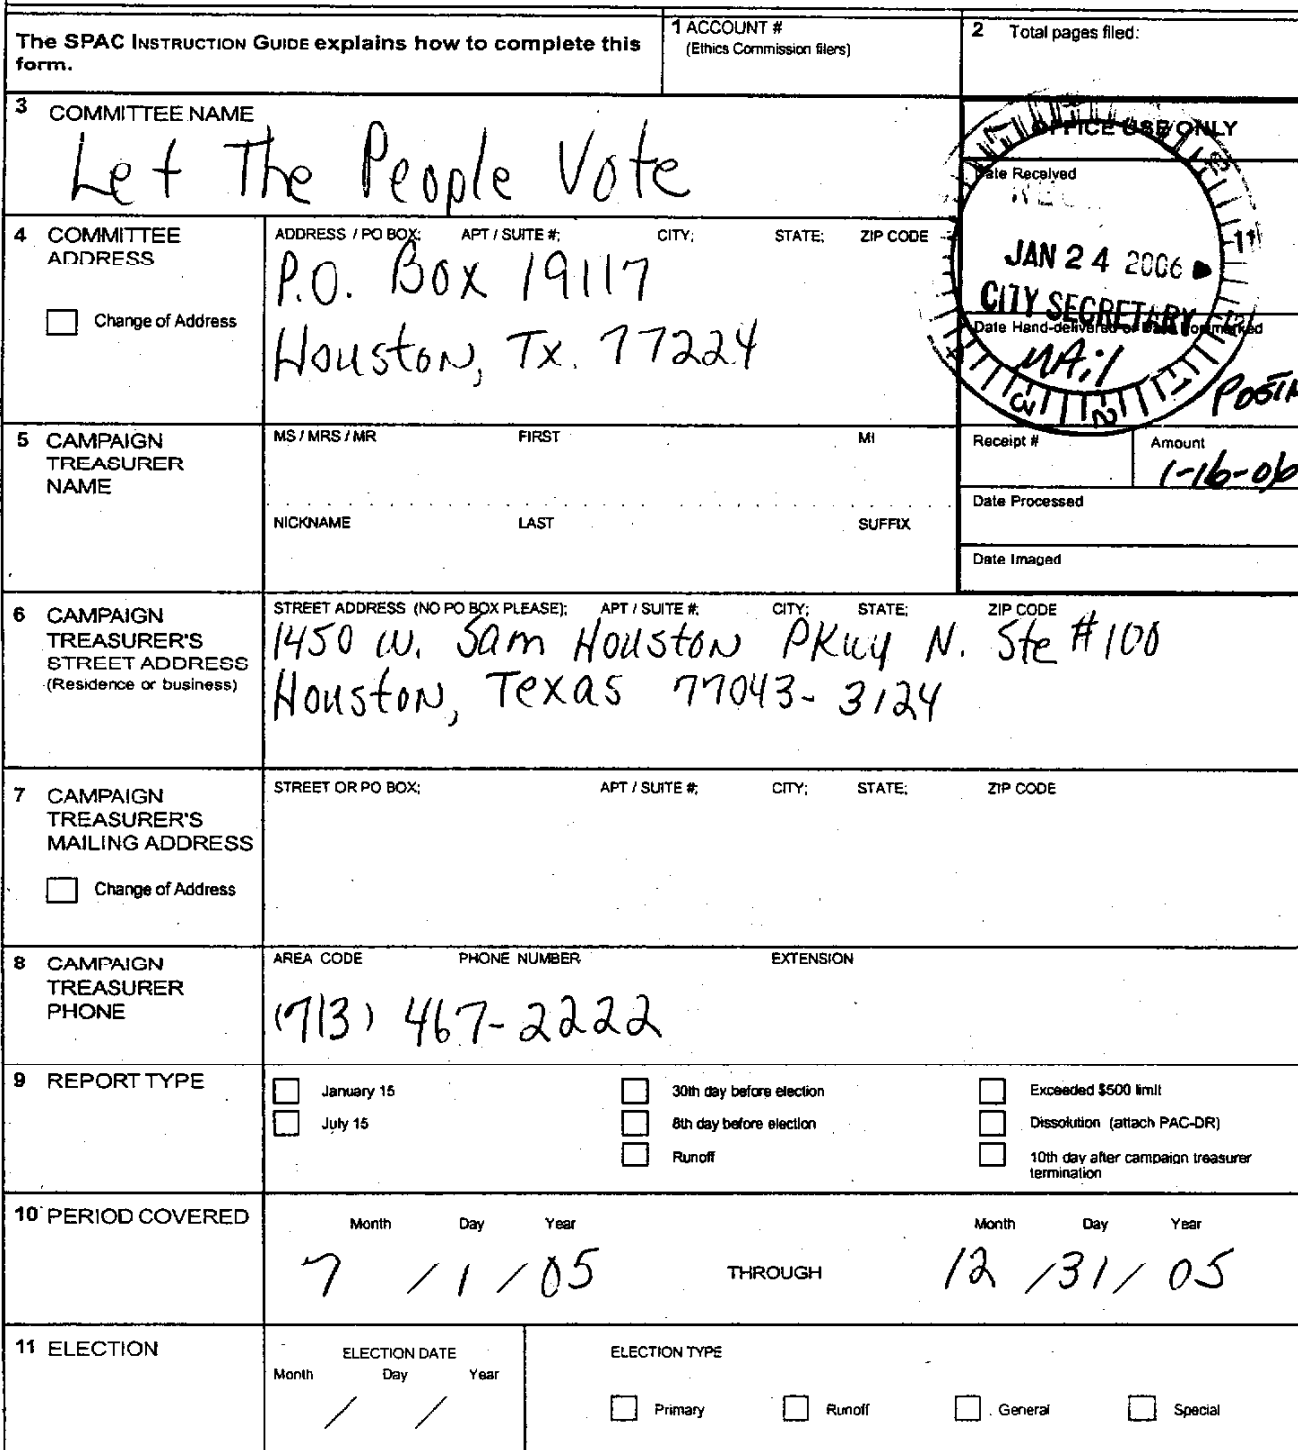 The SPAC INSTRUCTION GUIDE explains how to complete this form.
1 ACCOUNT #
(Ethics Commission filers)
2 Total pages filed:
3 COMMITTEE NAME
Let The People Vote
OFFICE USE ONLY
Date Received
JAN 24 2006
CITY SECRETARY
Date Hand-delivered or Date Postmarked
MAil
POSTM
Receipt #
Amount
1-16-06
Date Processed
Date Imaged
4 COMMITTEE ADDRESS
Change of Address
ADDRESS / PO BOX; APT / SUITE #; CITY; STATE; ZIP CODE
P.O. Box 19117
Houston, Tx. 77224
5 CAMPAIGN TREASURER NAME
MS / MRS / MR FIRST MI
NICKNAME LAST SUFFIX
6 CAMPAIGN TREASURER'S STREET ADDRESS
(Residence or business)
STREET ADDRESS (NO PO BOX PLEASE); APT / SUITE #; CITY; STATE; ZIP CODE
1450 W. Sam Houston PKwy N. Ste #100
Houston, Texas 77043-3124
7 CAMPAIGN TREASURER'S MAILING ADDRESS
Change of Address
STREET OR PO BOX; APT / SUITE #; CITY; STATE; ZIP CODE
8 CAMPAIGN TREASURER PHONE
AREA CODE PHONE NUMBER EXTENSION
(713) 467-2222
9 REPORT TYPE
January 15
July 15
30th day before election
8th day before election
Runoff
Exceeded $500 limit
Dissolution (attach PAC-DR)
10th day after campaign treasurer termination
10 PERIOD COVERED
Month Day Year
7 / 1 / 05
THROUGH
Month Day Year
12 / 31 / 05
11 ELECTION
ELECTION DATE
Month Day Year
/ /
ELECTION TYPE
Primary Runoff General Special